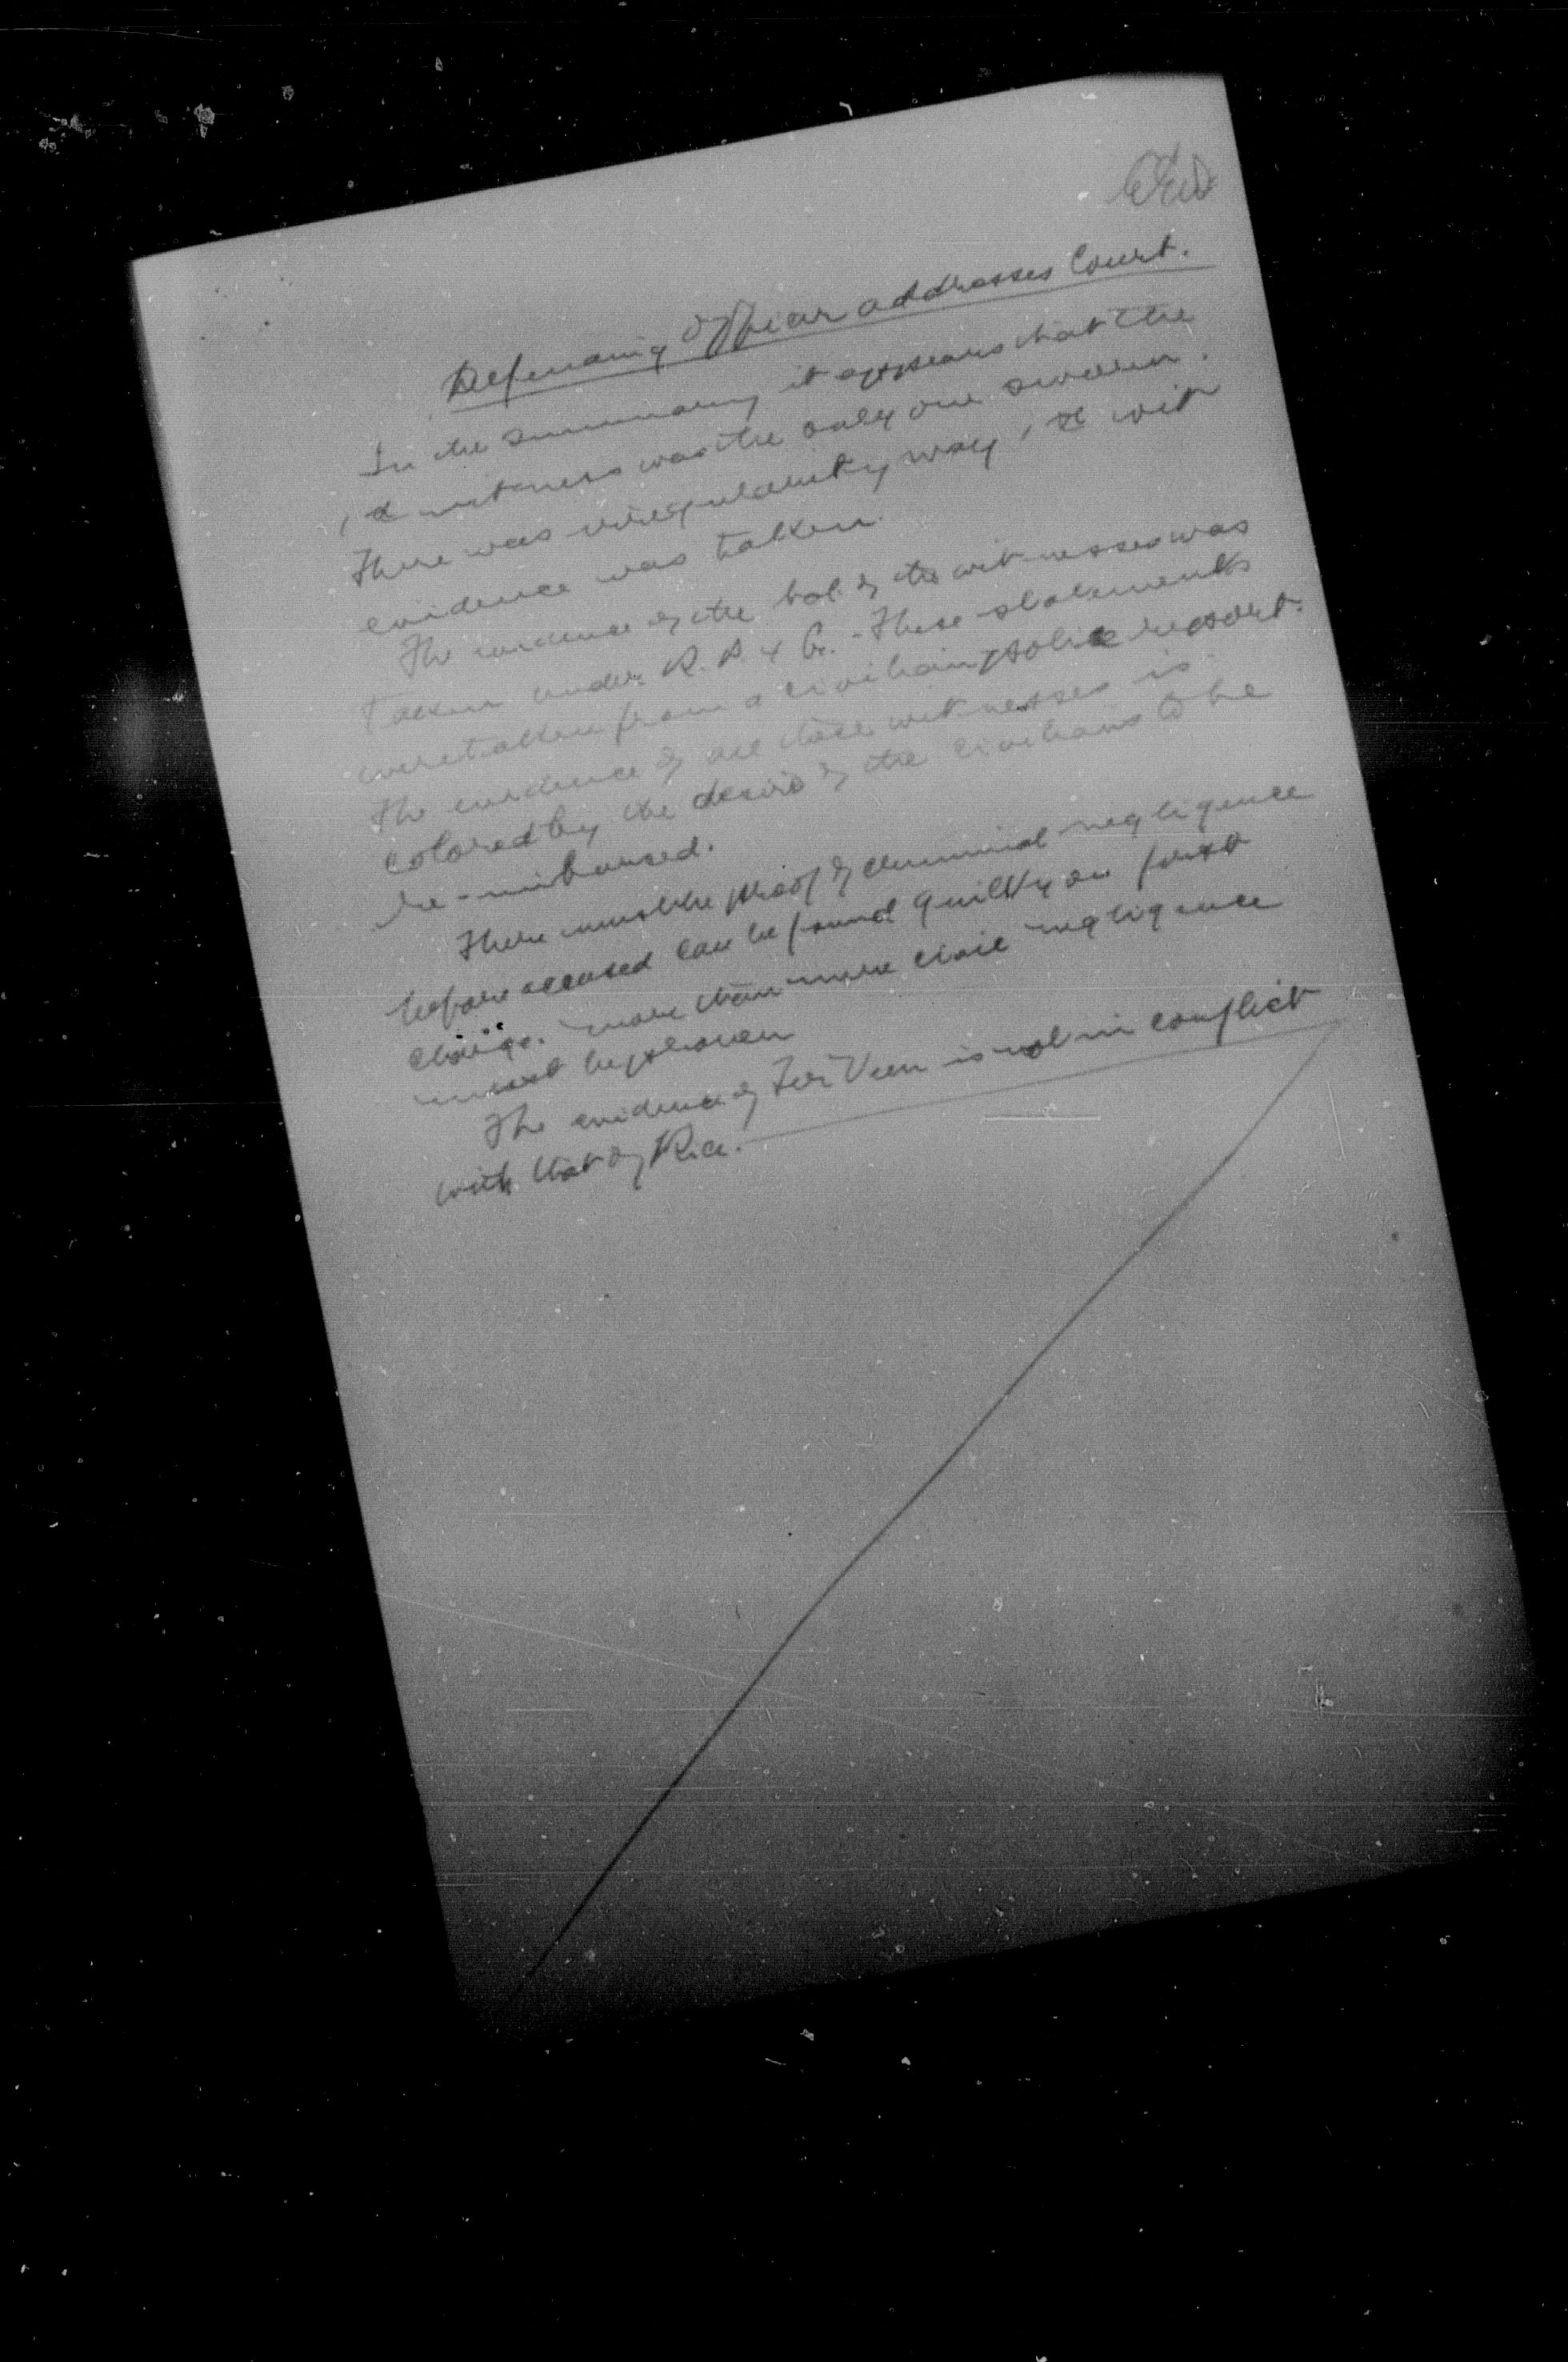 Defending Officer addresses Court.
In the summary it appears that the
1st witness was the only one sworn.
There was irregularity way 1st wit
evidence was taken.
The evidence of the bal of the witnesses was
taken under R. P. 4 G. These statements
were taken from a civilian police report.
The evidence of all these witnesses is
colored by the desire of the civilians to be
re-imbursed.
There must be proof of criminal negligence
before accused can be found guilty on first
charge. more than mere civil negligence
must be proven
The evidence of Ter Veen is not in conflict
with that of Rice.